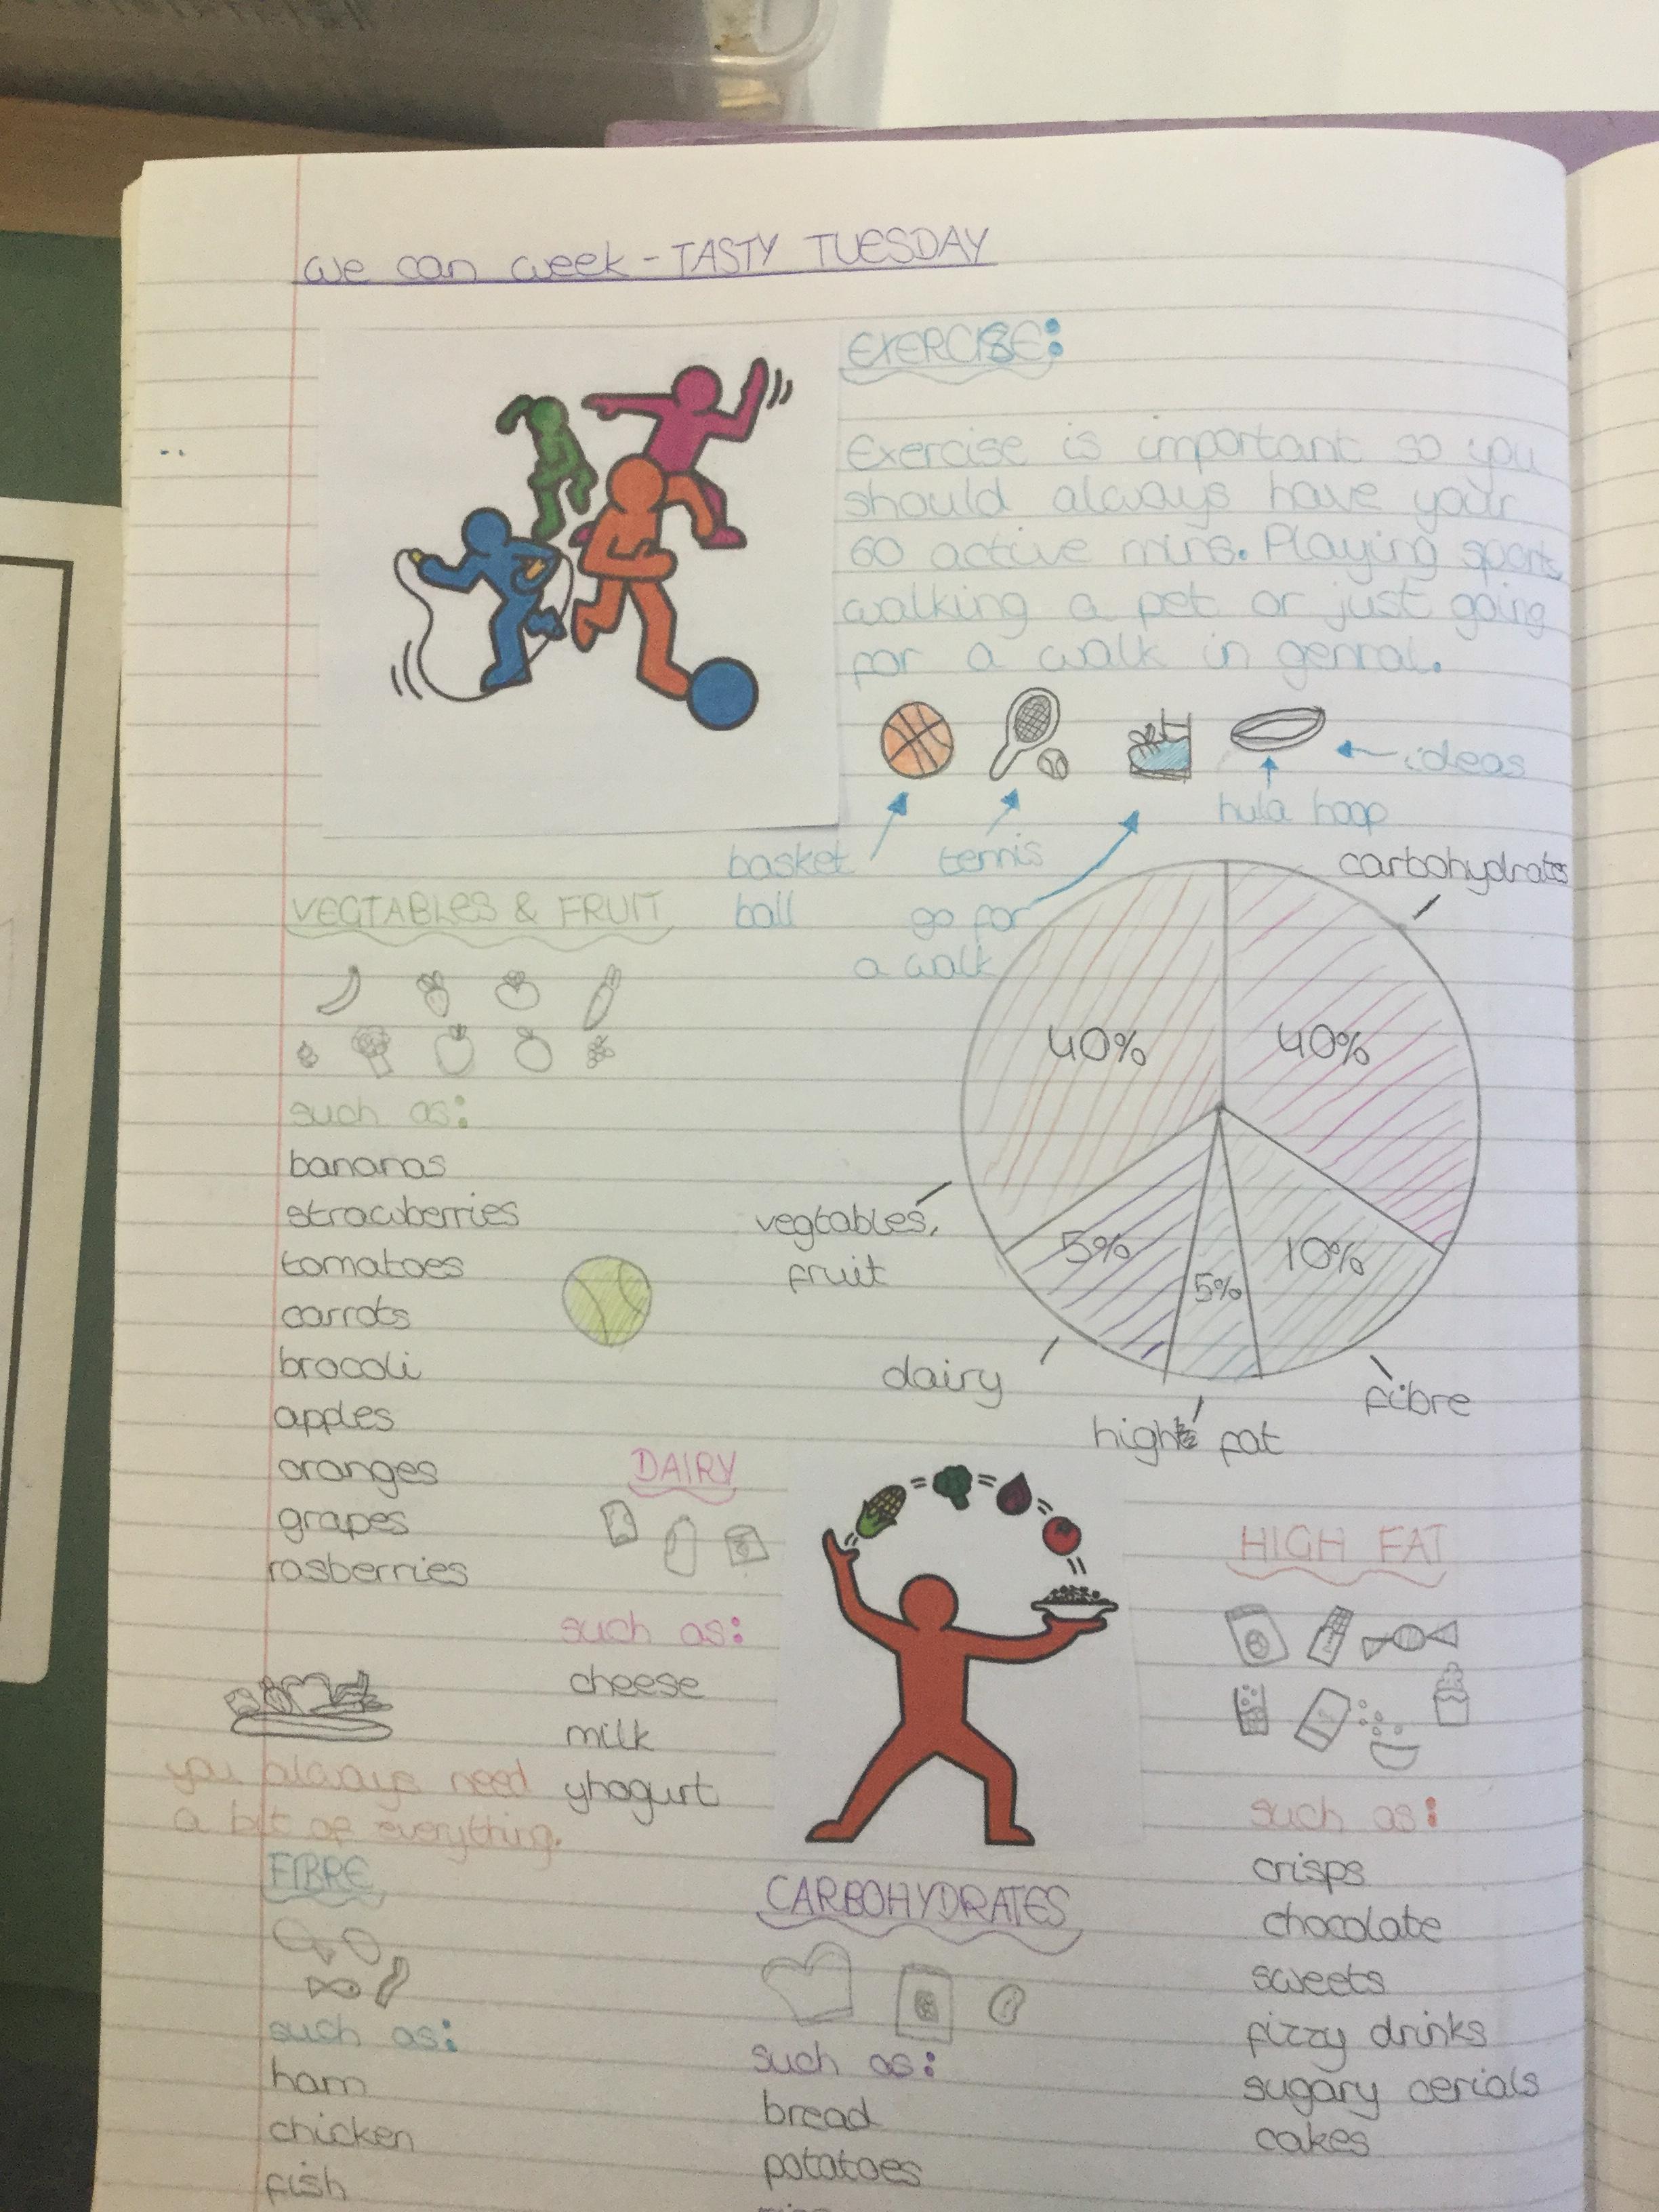 we can week - TASTY TUESDAY
EXERCISE:
Exercise is important so you
should always have your
60 active mins. Playing sport,
walking a pet or just going
for a walk in genral.
ideas
hula hoop
basket
ball
tennis
go for
a walk
carbohydrates
40%
40%
5%
5%
10%
vegtables,
fruit
dairy
high fat
fibre
VEGTABLES & FRUIT
such as:
bananas
strawberries
tomatoes
carrots
brocoli
apples
oranges
grapes
rasberries
DAIRY
such as:
cheese
milk
yhogurt
you always need
a bit of everything.
HIGH FAT
such as:
crisps
chocolate
sweets
fizzy drinks
sugary cerials
cakes
FIBRE
such as:
ham
chicken
fish
CARBOHYDRATES
such as:
bread
potatoes